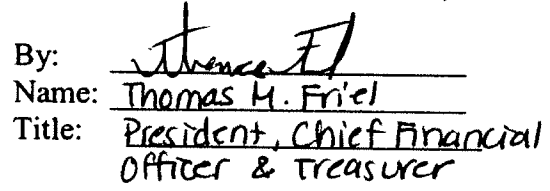 By:
Name: Thomas M. Friel
Title: President, Chief Financial
Officer & Treasurer